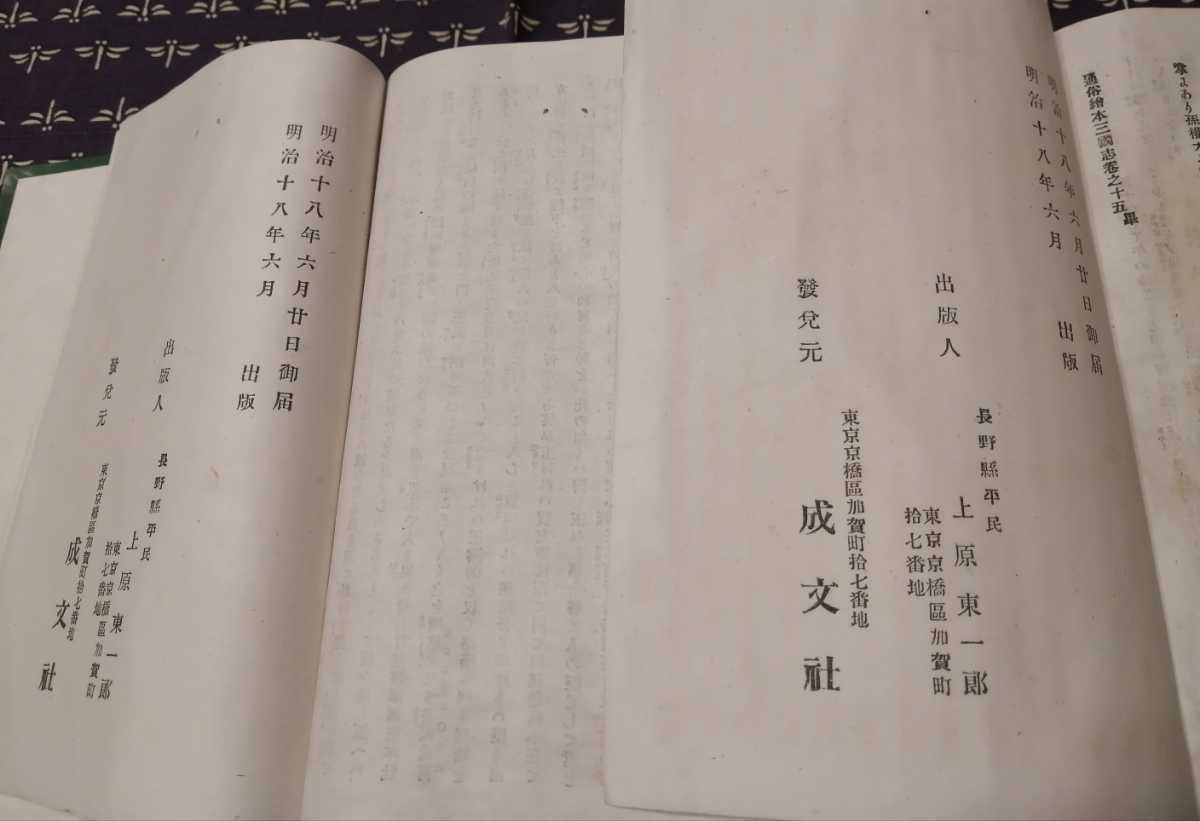 通俗繪本三國志卷之十五畢
明治十八年六月廿日御届
明治十八年六月 出版
出版人
長野縣平民
上原東一郎
東京京橋區加賀町
拾七番地
發兌元
東京京橋區加賀町拾七番地
成文社
明治十八年六月廿日御届
明治十八年六月 出版
出版人
長野縣平民
上原東一郎
東京京橋區加賀町
拾七番地
發兌元
東京京橋區加賀町拾七番地
成文社